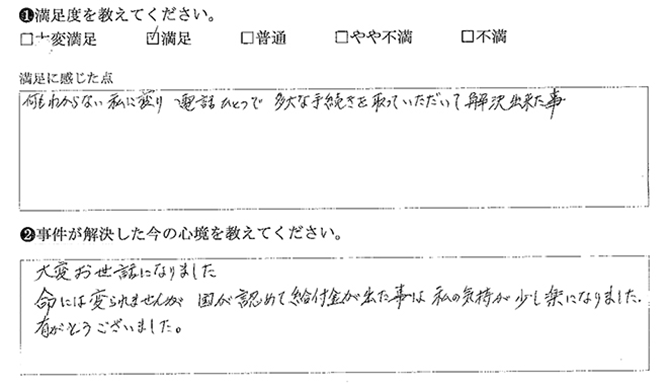 ❶満足度を教えてください。
□大変満足 ☑満足 □普通 □やや不満 □不満
満足に感じた点
何もわからない私に変り 電話ひとつで 多大な手続きを取っていただいて解決出来た事
❷事件が解決した今の心境を教えてください。
大変お世話になりました
命には変られませんが 国が認めて給付金が出た事は 私の気持が少し楽になりました.
有がとうございました。